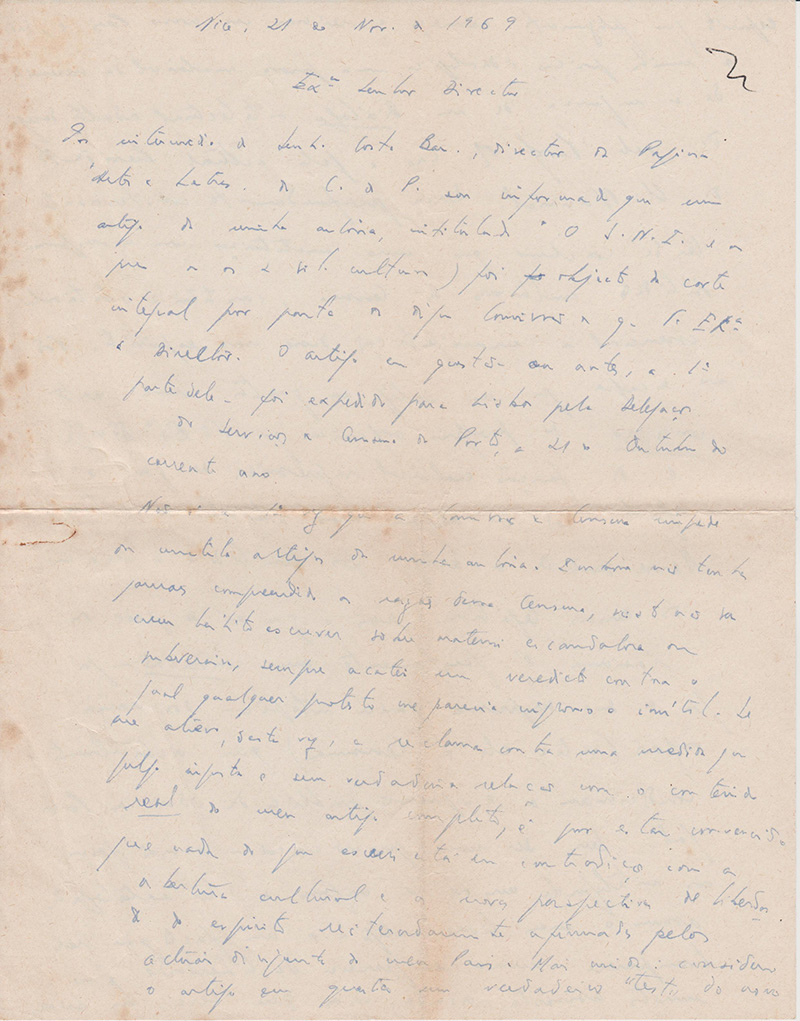 Nice, 21 de Nov. de 1969
Exmº Senhor Director
Por intermédio do Senhor Costa Barr., director da Página
"Artes e Letras" do C. do P. sou informado que um
artigo de minha autoria, intitulado "O S.N.I. e a
(não) cultura) foi objecto de corte
integral por parte da digna Comissão de que V. EXª
é Director. O artigo em questão ou antes, a 1ª
parte dele – foi expedido para Lisboa pela Delegação
dos Serviços de Censura do Porto, a 21 de Outubro do
corrente ano.
Não é a 1ª vez que a Comissão de Censura impede
ou mutila artigos da minha autoria. Embora não tenha
jamais compreendido as razões dessa Censura, visto não ser
meu hábito escrever sobre matéria escandalosa ou
subversiva, sempre acatei um veredicto contra o
qual qualquer protesto me parecia impróprio e inútil. Se
me atrevo, desta vez, a reclamar contra uma medida que
julgo injusta e sem verdadeira relação com o conteúdo
real do meu artigo completo, é por estar convencido
que nada do que escrevi está em contradição com a
abertura cultural e a nova perspectiva de liberda
de do espírito reiteradamente afirmadas pelos
actuais dirigentes do meu País. Mais ainda: considero
o artigo em questão um verdadeiro "test" do novo